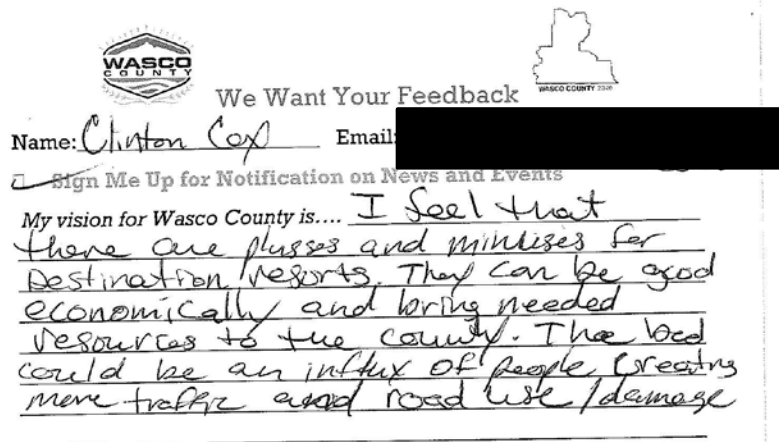 WASCO
COUNTY
WASCO COUNTY 2040
We Want Your Feedback
Name: Clinton Cox Email:
Sign Me Up for Notification on News and Events
My vision for Wasco County is.... I feel that
there are plusses and minuises for
Destination resorts. They can be good
economically and bring needed
resources to the county. The bad
could be an influx of people creating
more traffic and road use / damage